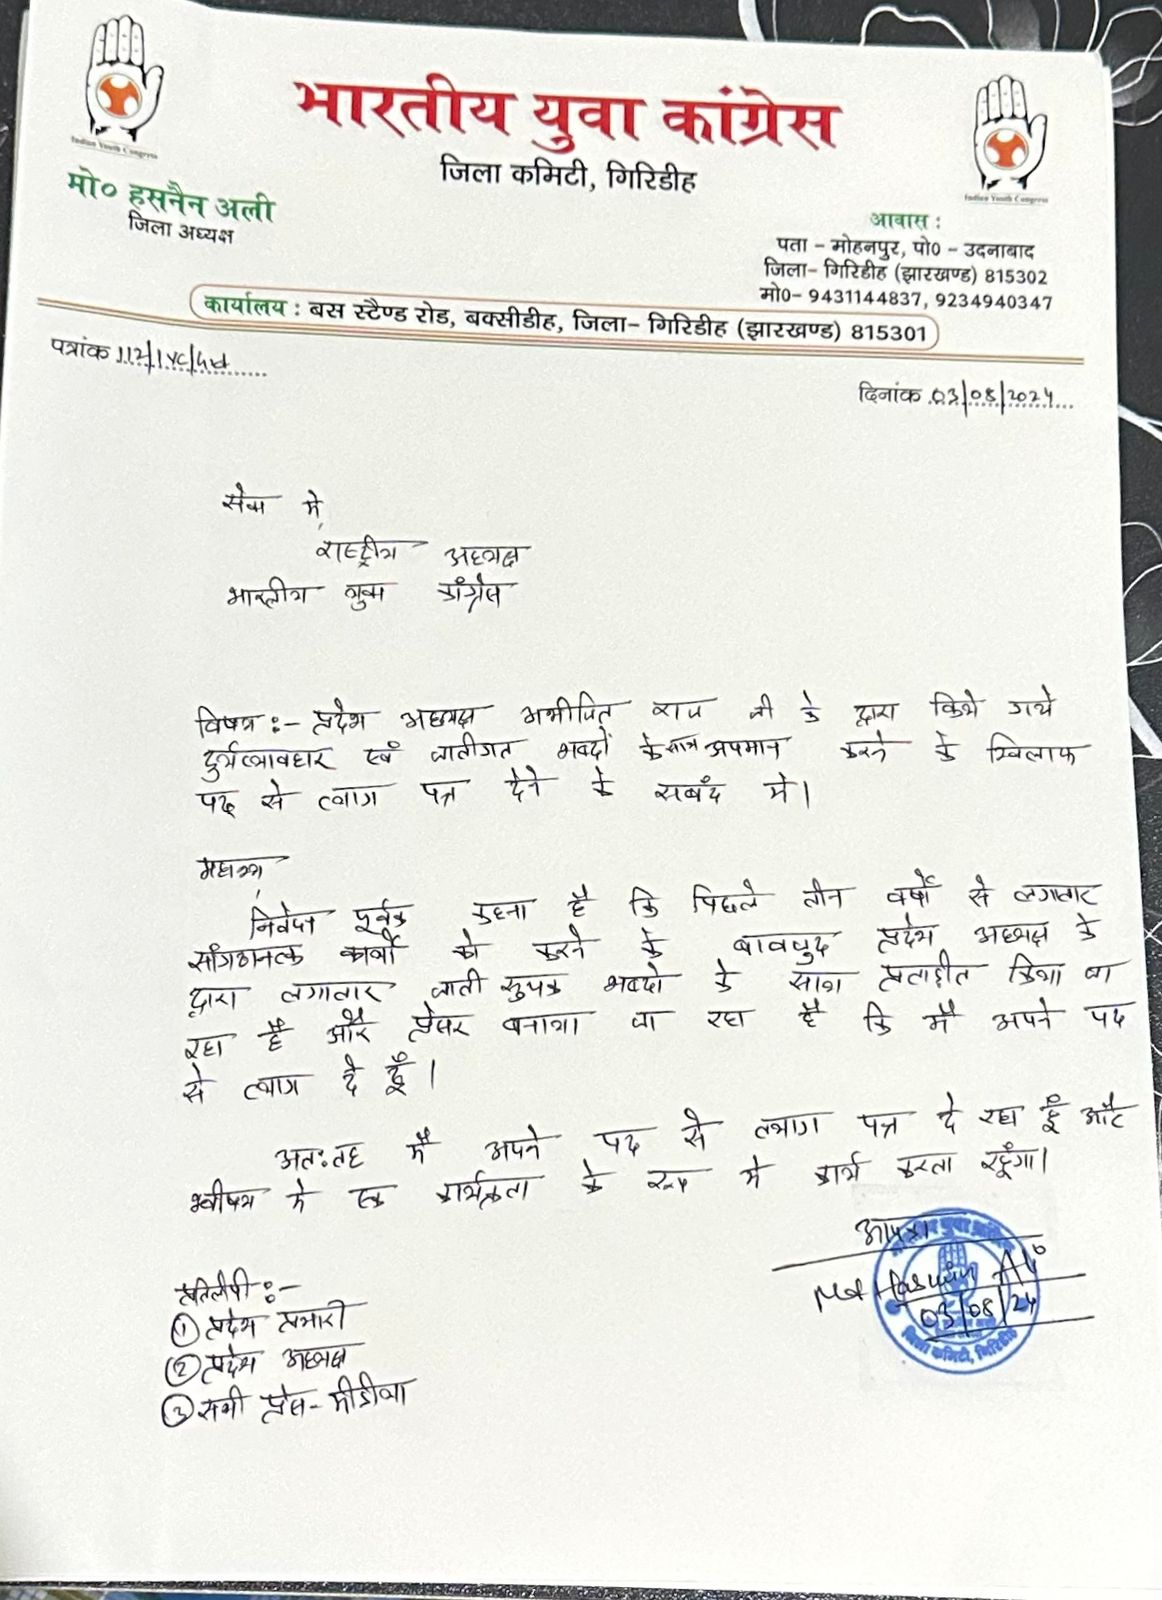 भारतीय युवा कांग्रेस
जिला कमिटी, गिरिडीह
Indian Youth Congress
Indian Youth Congress
मो० हसनैन अली
जिला अध्यक्ष
आवास :
पता - मोहनपुर, पो० - उदनाबाद
जिला- गिरिडीह (झारखण्ड) 815302
मो०- 9431144837, 9234940347
कार्यालय : बस स्टैण्ड रोड, बक्सीडीह, जिला- गिरिडीह (झारखण्ड) 815301
पत्रांक 112/IYC/
दिनांक 03/08/2024
सेवा में,
राष्ट्रीय अध्यक्ष
भारतीय युवा कांग्रेस
विषय :- प्रदेश अध्यक्ष अभीजित राज जी के द्वारा किये गये
दुर्व्यावहार एवं जातीगत शब्दों के साथ अपमान करने के खिलाफ
पद से त्याग पत्र देने के सबंद में।
महाशय,
निवेदन पूर्वक कहना है कि पिछले तीन वर्षों से लगातार
सांगठानत्क कार्यो को करने के बावजुद प्रदेश अध्यक्ष के
द्वारा लगातार जाती सुचक शब्दो के साथ प्रताड़ीत किया जा
रहा हैं और प्रेसर बनाया जा रहा है कि मैं अपने पद
से त्याग दे दूँ।
अतःतह मैं अपने पद से त्याग पत्र दे रहा हूँ और
भवीषय मे एक कार्यकता के रूप मे कार्य करता रहूँगा।
आपका
Md Hasnain Ali
03/08/24
जिला कमिटी, गिरिडीह
प्रतिलीपी :-
① प्रदेश प्रभारी
② प्रदेश अध्यक्ष
③ सभी प्रेस-मीडीया